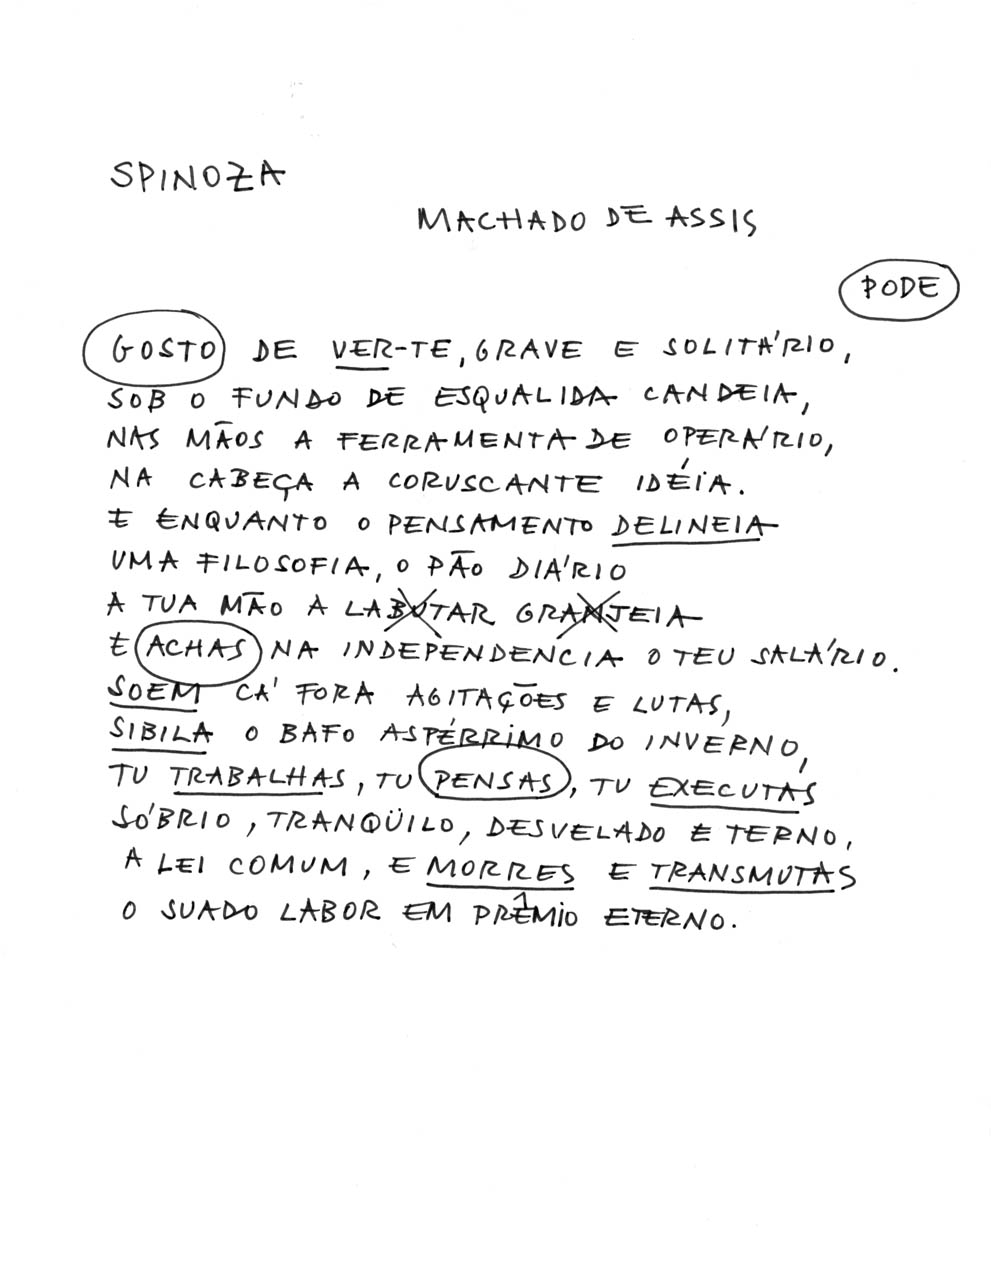 SPINOZA
MACHADO DE ASSIS
PODE
GOSTO DE VER-TE, GRAVE E SOLITÁRIO,
SOB O FUNDO DE ESQUALIDA CANDEIA,
NAS MÃOS A FERRAMENTA DE OPERÁRIO,
NA CABEÇA A CORUSCANTE IDÉIA.
E ENQUANTO O PENSAMENTO DELINEIA
UMA FILOSOFIA, O PÃO DIÁRIO
A TUA MÃO A LABUTAR GRANJEIA
E ACHAS NA INDEPENDENCIA O TEU SALÁRIO.
SOEM CÁ FORA AGITAÇÕES E LUTAS,
SIBILA O BAFO ASPÉRRIMO DO INVERNO,
TU TRABALHAS, TU PENSAS, TU EXECUTAS
SÓBRIO, TRANQÜILO, DESVELADO E TERNO,
A LEI COMUM, E MORRES E TRANSMUTAS
O SUADO LABOR EM PRÊMIO ETERNO.